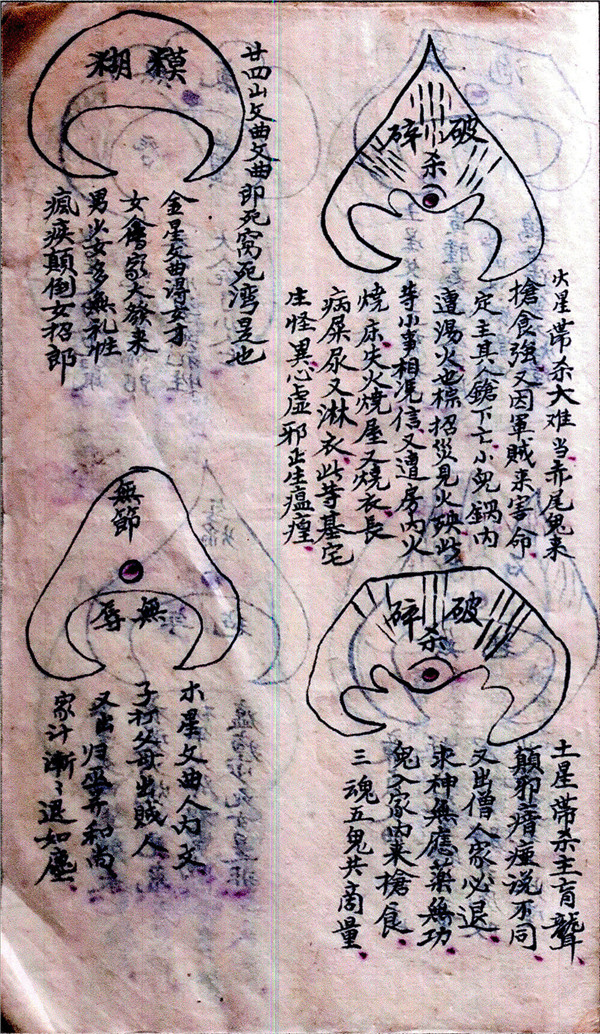 破碎
杀
火星帶杀大难当赤尾鬼来
搶食強又因軍賊来害命
定主其人鎗下亡小兒鍋内
遭湯火也棕招災見火殃此
等小事相况信又遭房内火
燒床失火燒屋又燒衣長
病屎尿又淋衣此等基宅
生怪異心虚邪正生瘟
廿四山文曲文曲即死窝死湾是也
糢糊
金星文曲淂女才
女會家大發来
男少女多無礼性
瘋疾顛倒女招郎
破碎
杀
土星帶杀主盲聾
顛邪瘖瘂说不同
又出僧人家必退
求神無應藥無功
鬼入家内来搶食
三魂五鬼共商量
無節
無辱
木星文曲人内文
子初父母出賊人
又出归巫并和尚
家计漸々退如塵